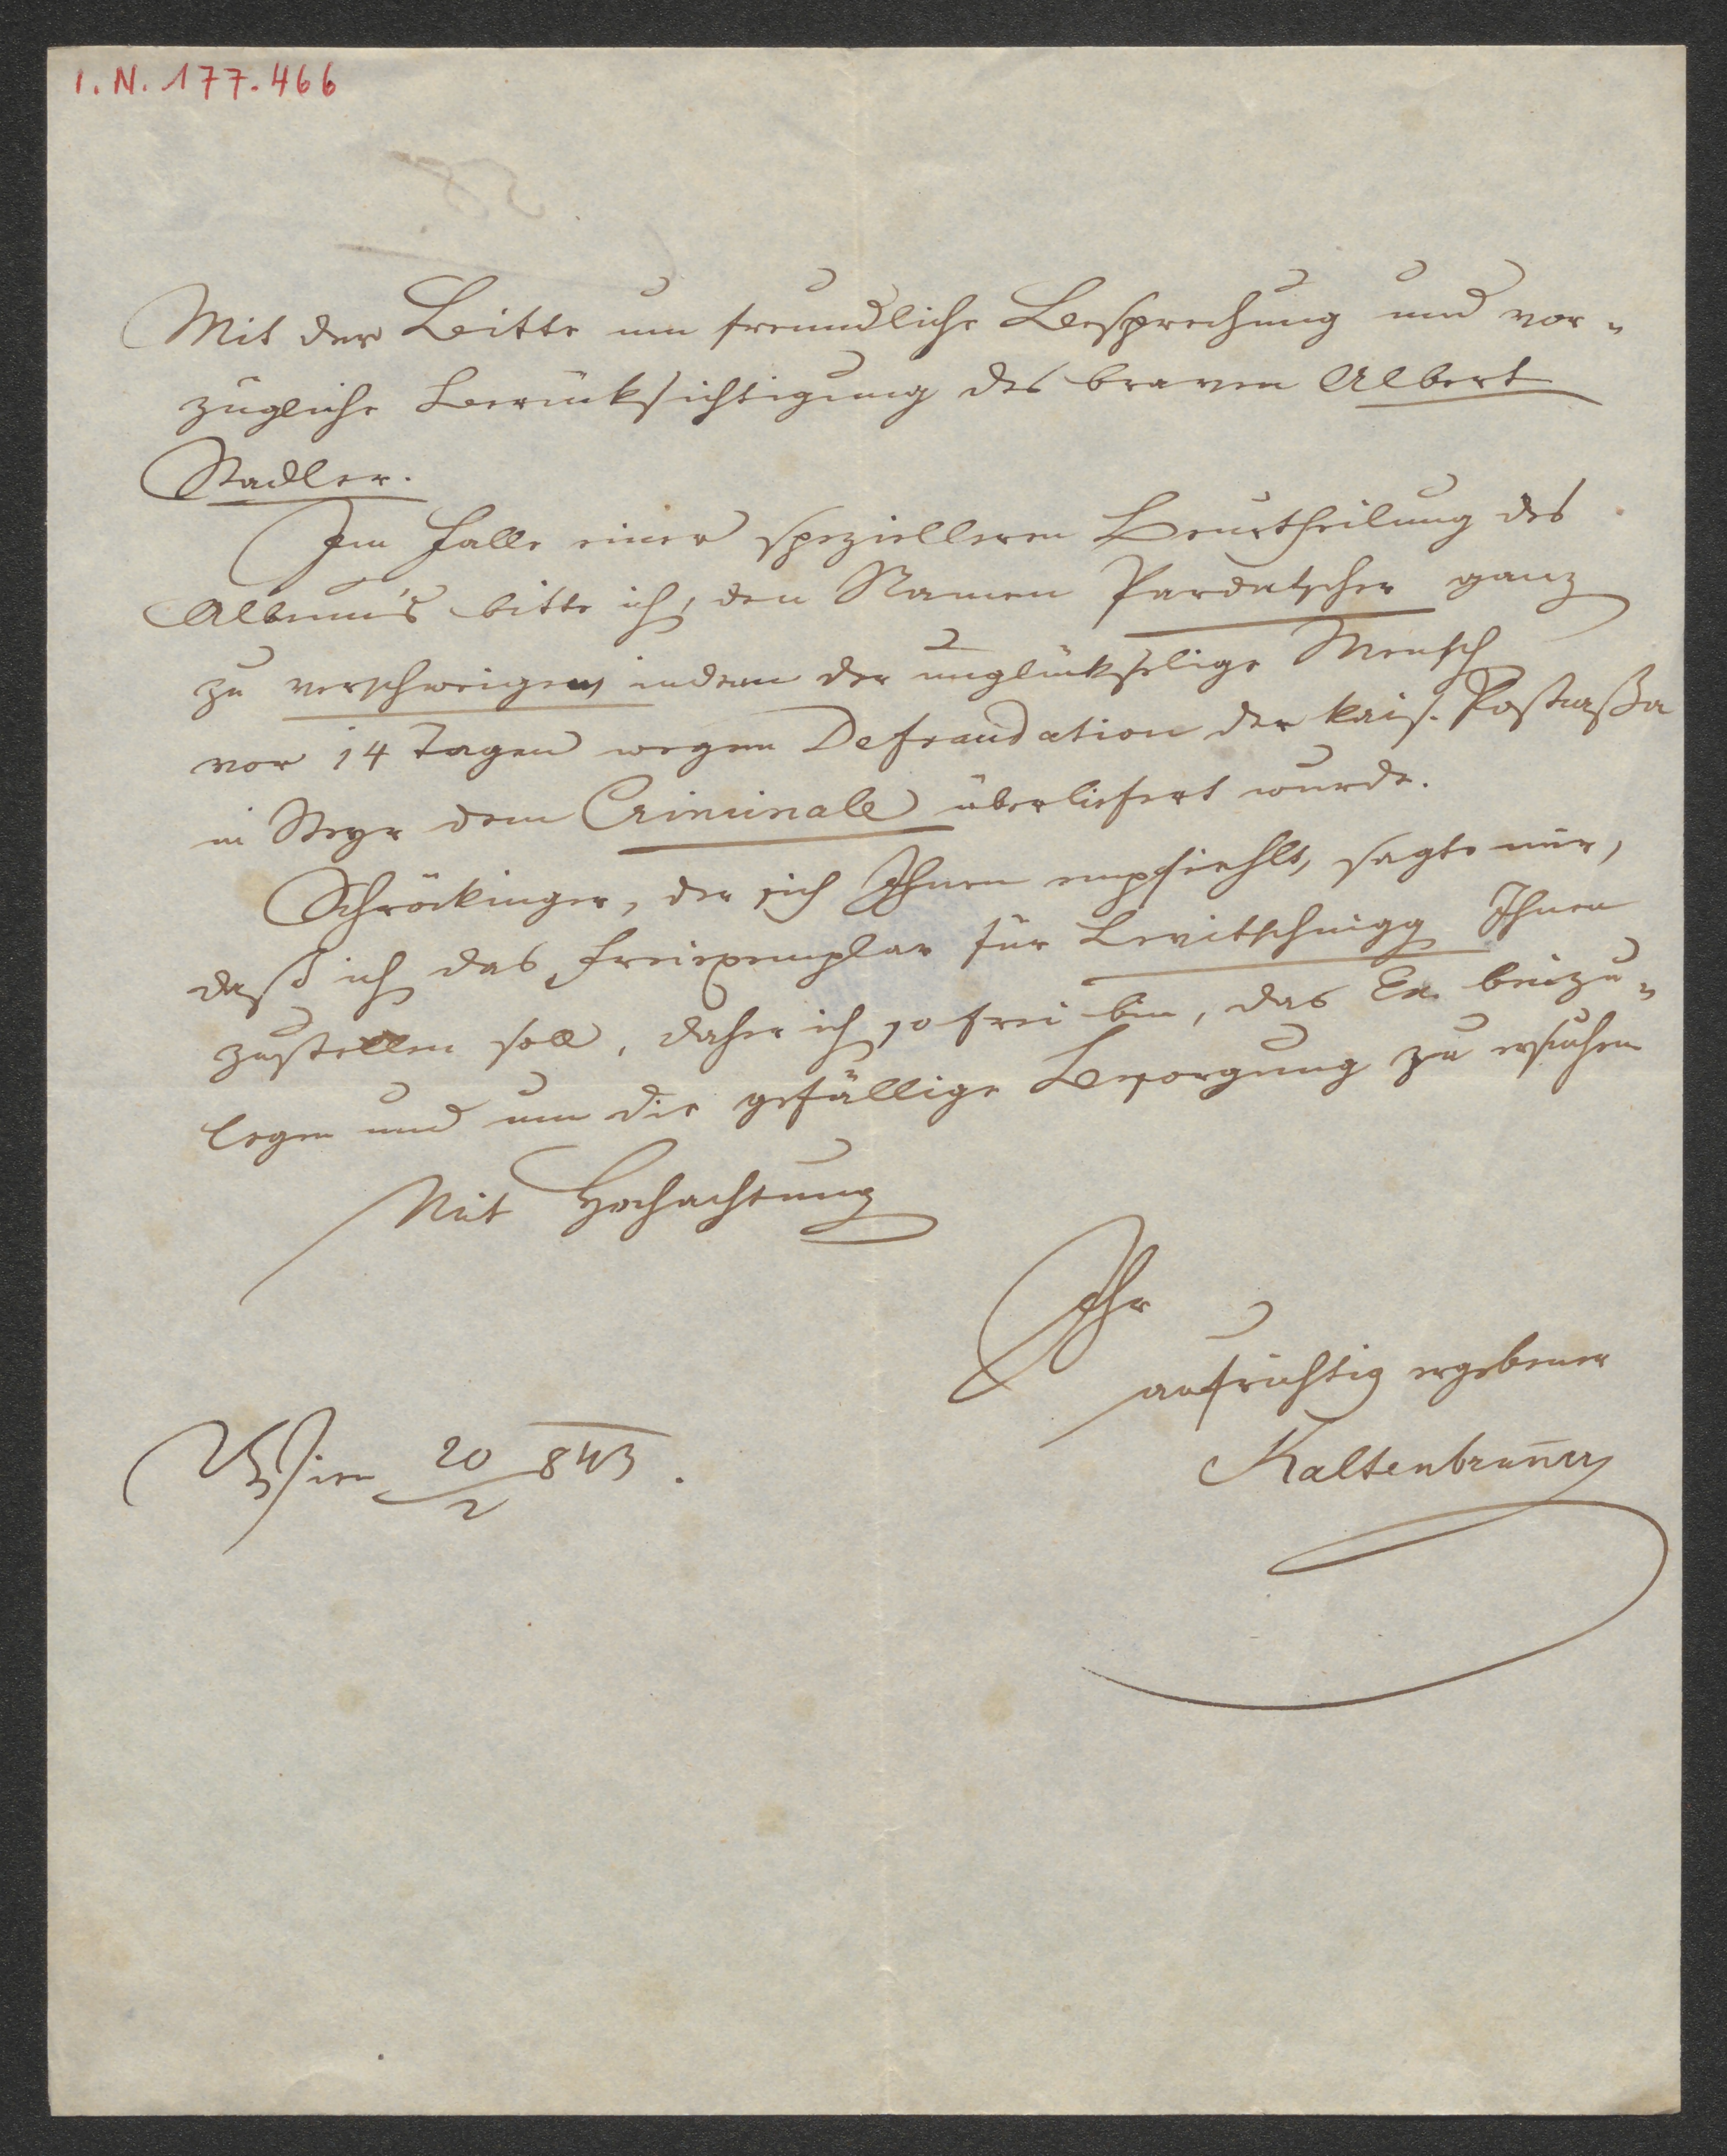 I. N. 177.466
Mit der Bitte um freundliche Besprechung und vor-
zügliche Berücksichtigung des braven Albert
Stadler.
Im Falle einer spezielleren Beurtheilung des
Album's bitte ich, den Namen Pardatscher ganz
zu verschweigen, indem der unglückselige Mensch
vor 14 Tagen wegen Defraudation der kais. Postcassa
in Steyr dem Criminale überliefert wurde.
Schröckinger, der sich Ihnen empfiehlt, sagte mir,
daß ich das Freiexemplar für Levitschnigg Ihnen
zustellen soll, daher ich so frei bin, das Ex. beizu-
legen und um die gefällige Besorgung zu ersuchen
Mit Hochachtung
Ihr
aufrichtig ergebener
Kaltenbrunner
Wien 20/2 843.